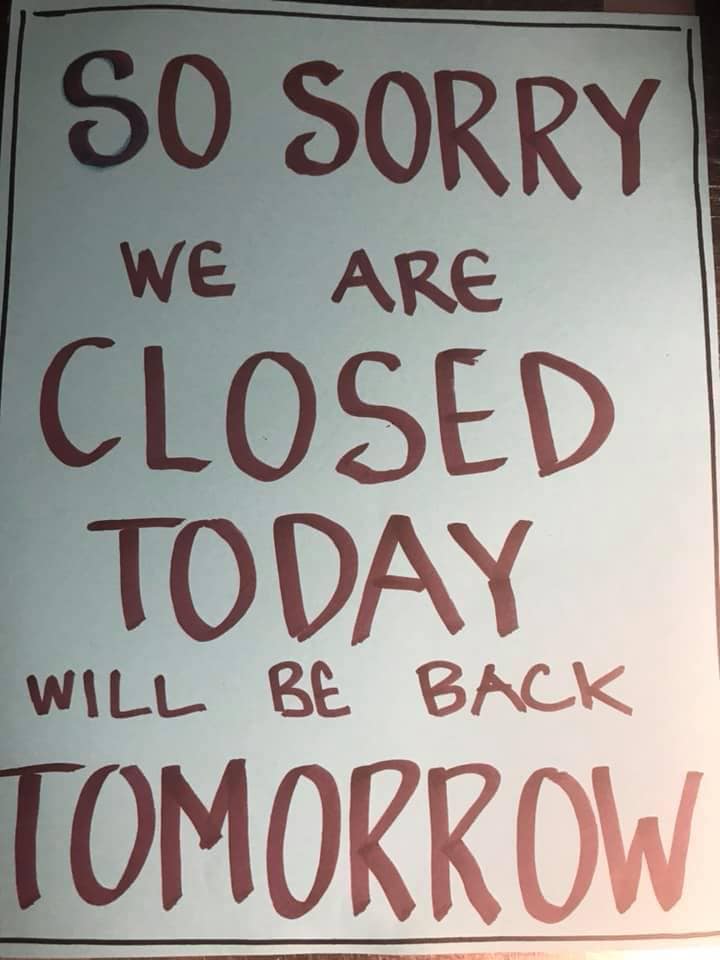 SO SORRY
WE ARE
CLOSED
TODAY
WILL BE BACK
TOMORROW